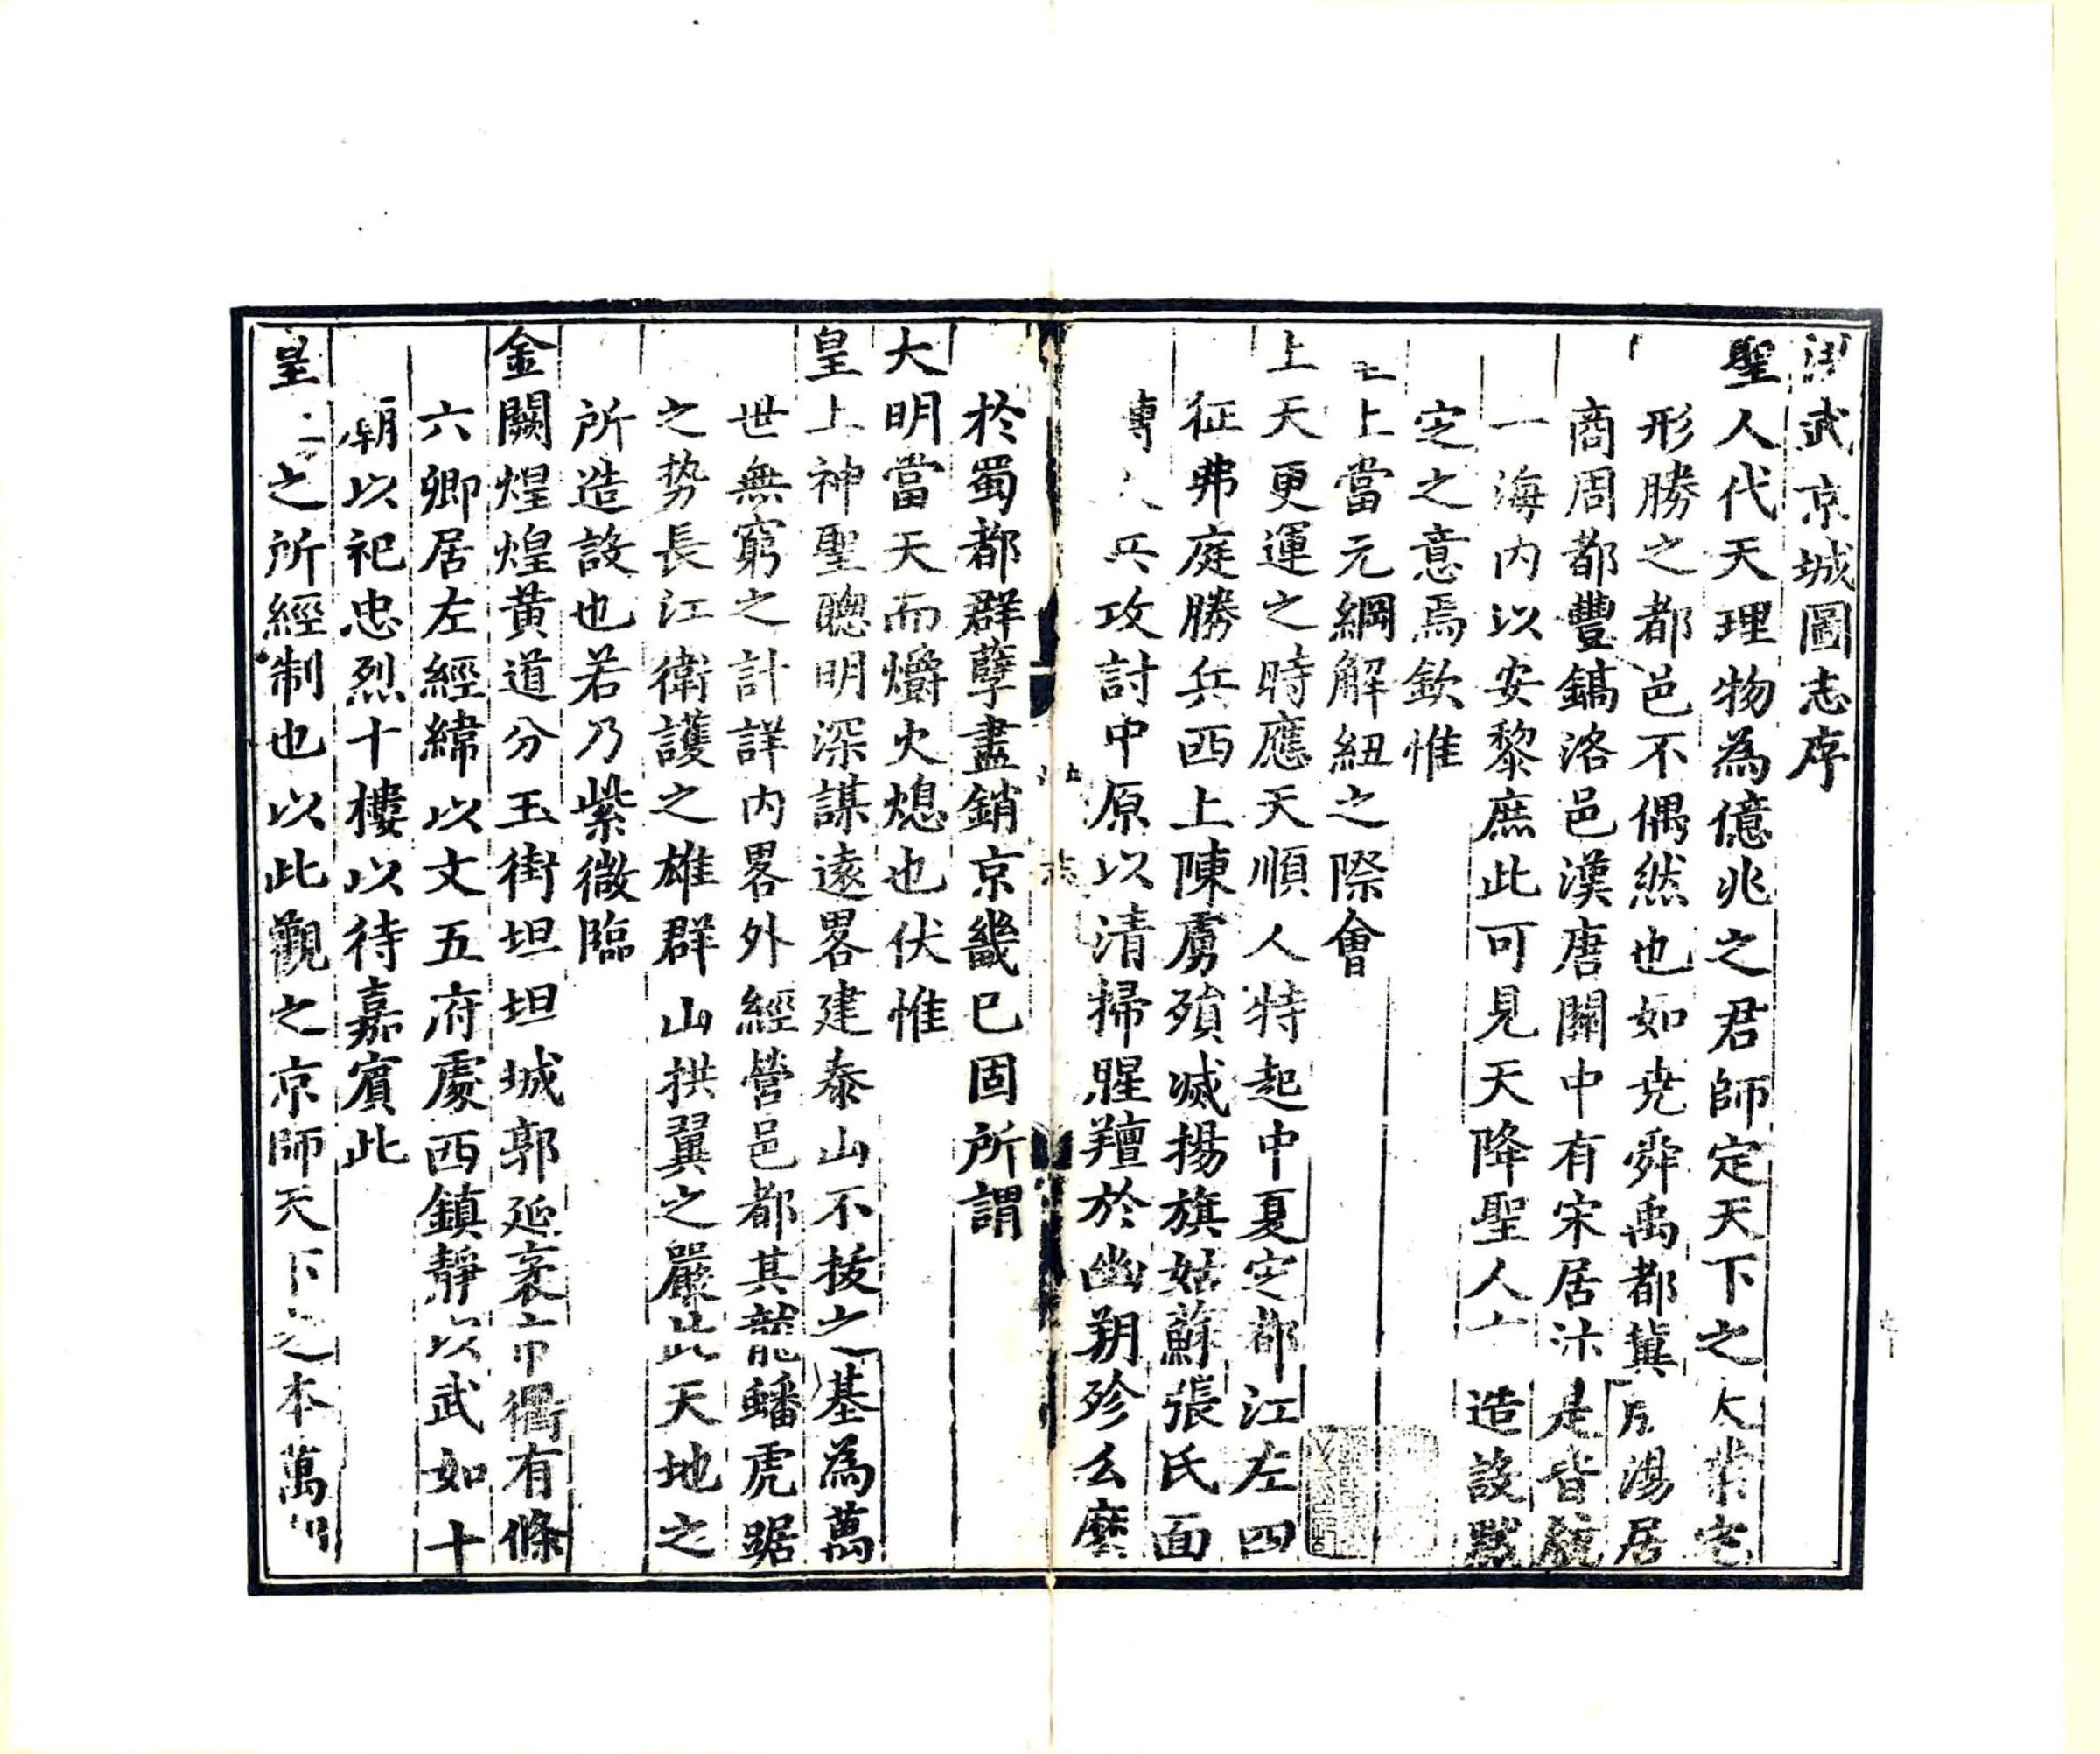 洪武京城圖志序
聖人代天理物為億兆之君師定天下之大業宅
形勝之都邑不偶然也如堯舜禹都冀成湯居
商周都豐鎬洛邑漢唐關中有宋居汴是皆統
一海內以安黎庶此可見天降聖人 造設默
定之意焉欽惟
上當元綱解紐之際會
上天更運之時應天順人特起中夏定都江左四
征弗庭勝兵西上陳虜殞滅揚旗姑蘇張氏面
縛 兵攻討中原以清掃腥羶於幽朔殄么麼
於蜀都群孽盡銷京畿已固所謂
大明當天而爝火熄也伏惟
皇上神聖聰明深謀遠畧建泰山不拔之基為萬
世無窮之計詳內畧外經營邑都其龍蟠虎踞
之势長江衛護之雄群山拱翼之嚴此天地之
所造設也若乃紫微臨
金闕煌煌黃道分玉街坦坦城郭延袤市衢有條
六卿居左經緯以文五府處西鎮靜以武如十
廟以祀忠烈十樓以待嘉賓此
皇上之所經制也以此觀之京師天下之本萬